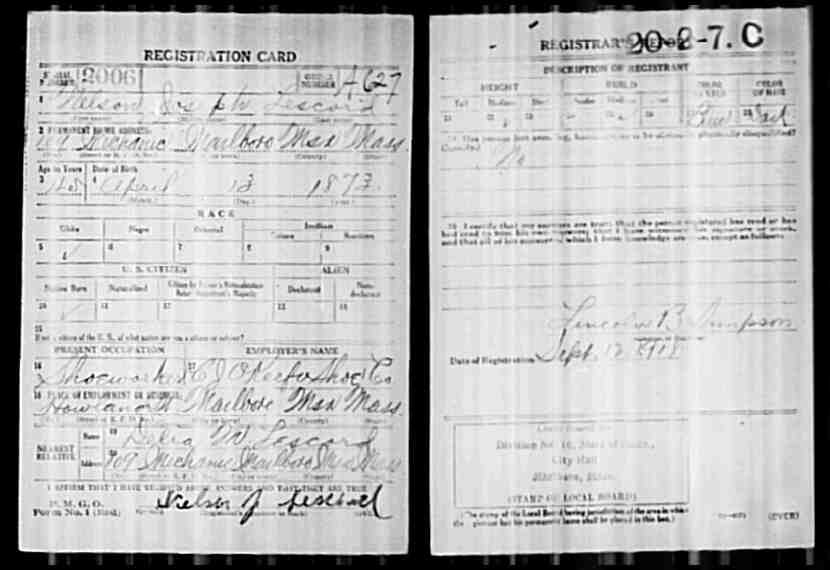 REGISTRATION CARD
SERIAL NUMBER 2006 ORDER NUMBER A627
1 Nelson Joseph Lescord
2 PERMANENT HOME ADDRESS:
109 Mechanic Marlboro Msx Mass.
Age in Years Date of Birth
3 45 4 April 13 1873
(Month.) (Day.) (Year.)
RACE
White Negro Oriental Indian
Citizen Noncitizen
5 ✓ 6 7 8 9
U. S. CITIZEN ALIEN
Native Born Naturalized Citizen by Father's Naturalization Before Registrant's Majority Declarant Non-declarant
10 ✓ 11 12 13 14
15
If not a citizen of the U. S., of what nation are you a citizen or subject?
PRESENT OCCUPATION EMPLOYER'S NAME
16 Shoeworker 17 C J O'Keefe Shoe Co
18 PLACE OF EMPLOYMENT OR BUSINESS:
Howland St Marlboro Msx Mass.
NEAREST RELATIVE
Name 19 Delia M Lescord
Address 20 109 Mechanic Marlboro Msx Mass
I AFFIRM THAT I HAVE VERIFIED ABOVE ANSWERS AND THAT THEY ARE TRUE
P. M. G. O.
Form No. 1 (Red) Nelson J
REGISTRAR'S REPORT 20-2-7. C
DESCRIPTION OF REGISTRANT
HEIGHT BUILD COLOR OF EYES COLOR OF HAIR
Tall Medium Short Slender Medium Stout
21 22 23 24 25 26 27 Blue 28 Dark
29 Has person lost arm, leg, hand, eye, or is he obviously physically disqualified?
(Specify.) No
30 I certify that my answers are true; that the person registered has read or has
had read to him his own answers; that I have witnessed his signature or mark,
and that all of his answers of which I have knowledge are true, except as follows:
Lincoln B Simpson
Date of Registration Sept. 12 1918
Local Board for
Division No. 10, State of Mass.,
City Hall
Marlboro, Mass.
(STAMP OF LOCAL BOARD)
(The stamp of the Local Board having jurisdiction of the area in which
the person has his permanent home shall be placed in this box.)
(OVER)